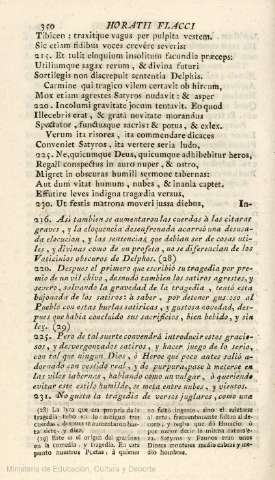 350 HORATII FLACCI
Tibicen: traxitque vagus per pulpita vestem.
Sic etiam fidibus voces crevére severis:
215. Et tulit eloquium insolitum facundia præceps:
Utiliumque sagax rerum, & divina futuri
Sortilegis non discrepuit sententia Delphis.
Carmine qui tragico vilem certavit ob hircum,
Mox etiam agrestes Satyros nudavit: & asper
220. Incolumi gravitate jocum tentavit. Eo quod
Illecebris erat, & grata novitate morandus
Spectator, functusque sacris: & potus, & exlex.
Verum ita risores, ita commendare dicaces
Conveniet Satyros, ita vertere seria ludo,
225. Ne, quicumque Deus, quicumque adhibebitur heros,
Regali conspectus in auro nuper, & ostro,
Migret in obscuras humili sermone tabernas:
Aut dum vitat humum, nubes, & inania captet.
Effutire leves indigna tragœdia versus,
230. Ut festis matrona moveri jussa diebus,
In-
216. Así tambien se aumentaron las cuerdas à las citaras
graves, y la eloquencia desenfrenada acarreó una desusa-
da elocucion, y las sentencias, que debian ser de cosas uti-
les, y divinas como de un profeta, no se diferencian de los
Vaticinios obscuros de Delphos. (28)
220. Despues el primero que escribió su tragedia por pre-
mio de un vil chivo, desnudó tambien los satiros agrestes, y
severo, salvando la gravedad de la tragedia, tentó esta
bufonada de los satiros à saber, por detener gustoso al
Pueblo con estas burlas satiricas, y gustosa novedad, des-
pues que habia concluido sus sacrificios, bien bebido, y sin
ley. (29)
225. Pero de tal suerte convendrá introducir estos gracio-
sos, y desvergonzados satiros, y hacer juego de lo serio,
con tal que ningun Dios, ò Heroe que poco antes salió a-
dornado con vestido real, y de purpura, pase à meterse en
las viles tabernas, hablando como un vulgar, ò queriendo
evitar este estilo humilde, se meta entre nubes, y vientos.
231. No gusta la tragedia de versos juglares, como una
(28) La lyra que era propria de la
tragedia
cuerdas, despues se aumentaron has-
ta siete, y diez.
(29) Este es el origen del gracioso
en la comedia, y tragedia. En esto
nuestros Poetas, à quienes
Ministerio de Educación, Cultura y Deporte